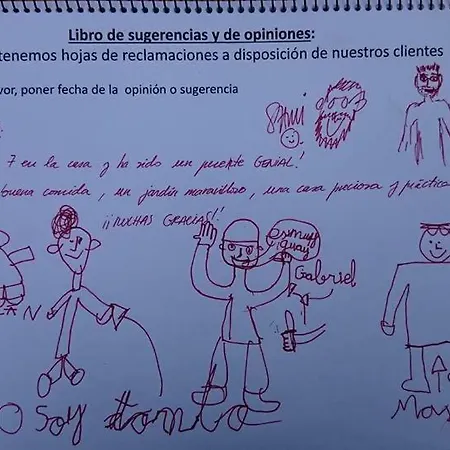 Libro de sugerencias y de opiniones:
tenemos hojas de reclamaciones a disposición de nuestros clientes
vor, poner fecha de la opinión o sugerencia
7 en la casa y ha sido un puente GENIAL!
buena comida, un jardín maravilloso, una casa preciosa y práctica
¡¡MUCHAS GRACIAS!!
es muy
guay
Gabriel
AN
O SOY tonto
Mas